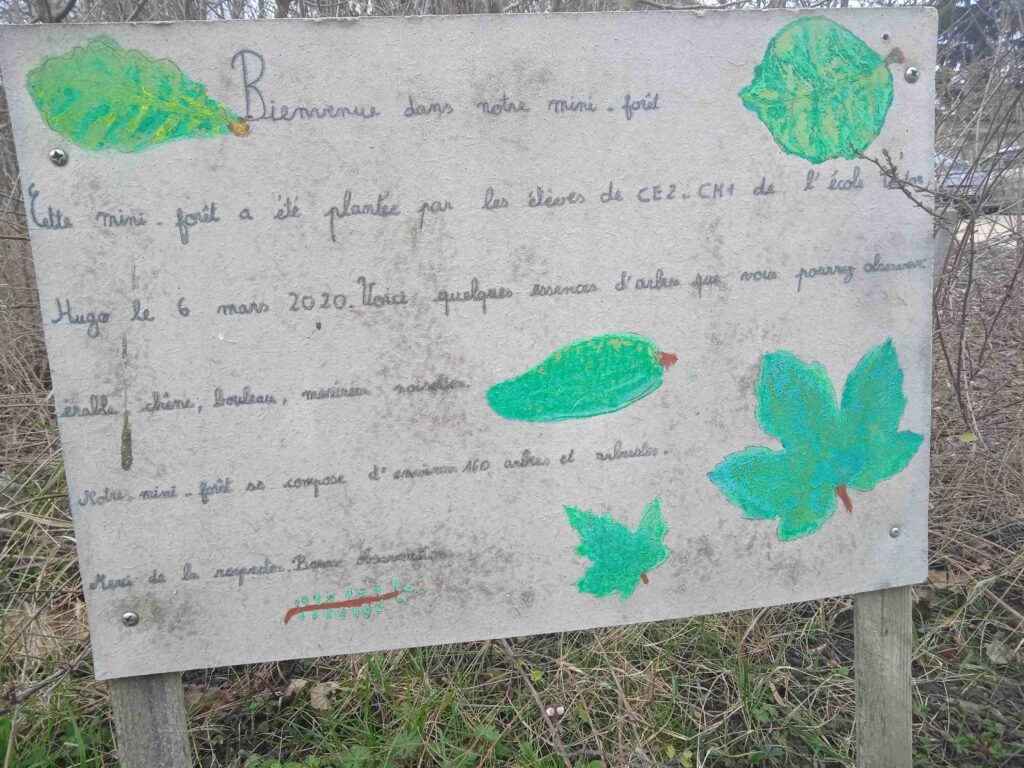 Bienvenue dans notre mini-forêt
Cette mini-forêt a été plantée par les élèves de CE2-CM1 de l'école Victor
Hugo le 6 mars 2020. Voici quelques essences d'arbres que vous pourrez observer:
érable, chêne, bouleau, merisier noisetier.
Notre mini-forêt se compose d'environ 160 arbres et arbustes.
Merci de la respecter. Bonne observation.